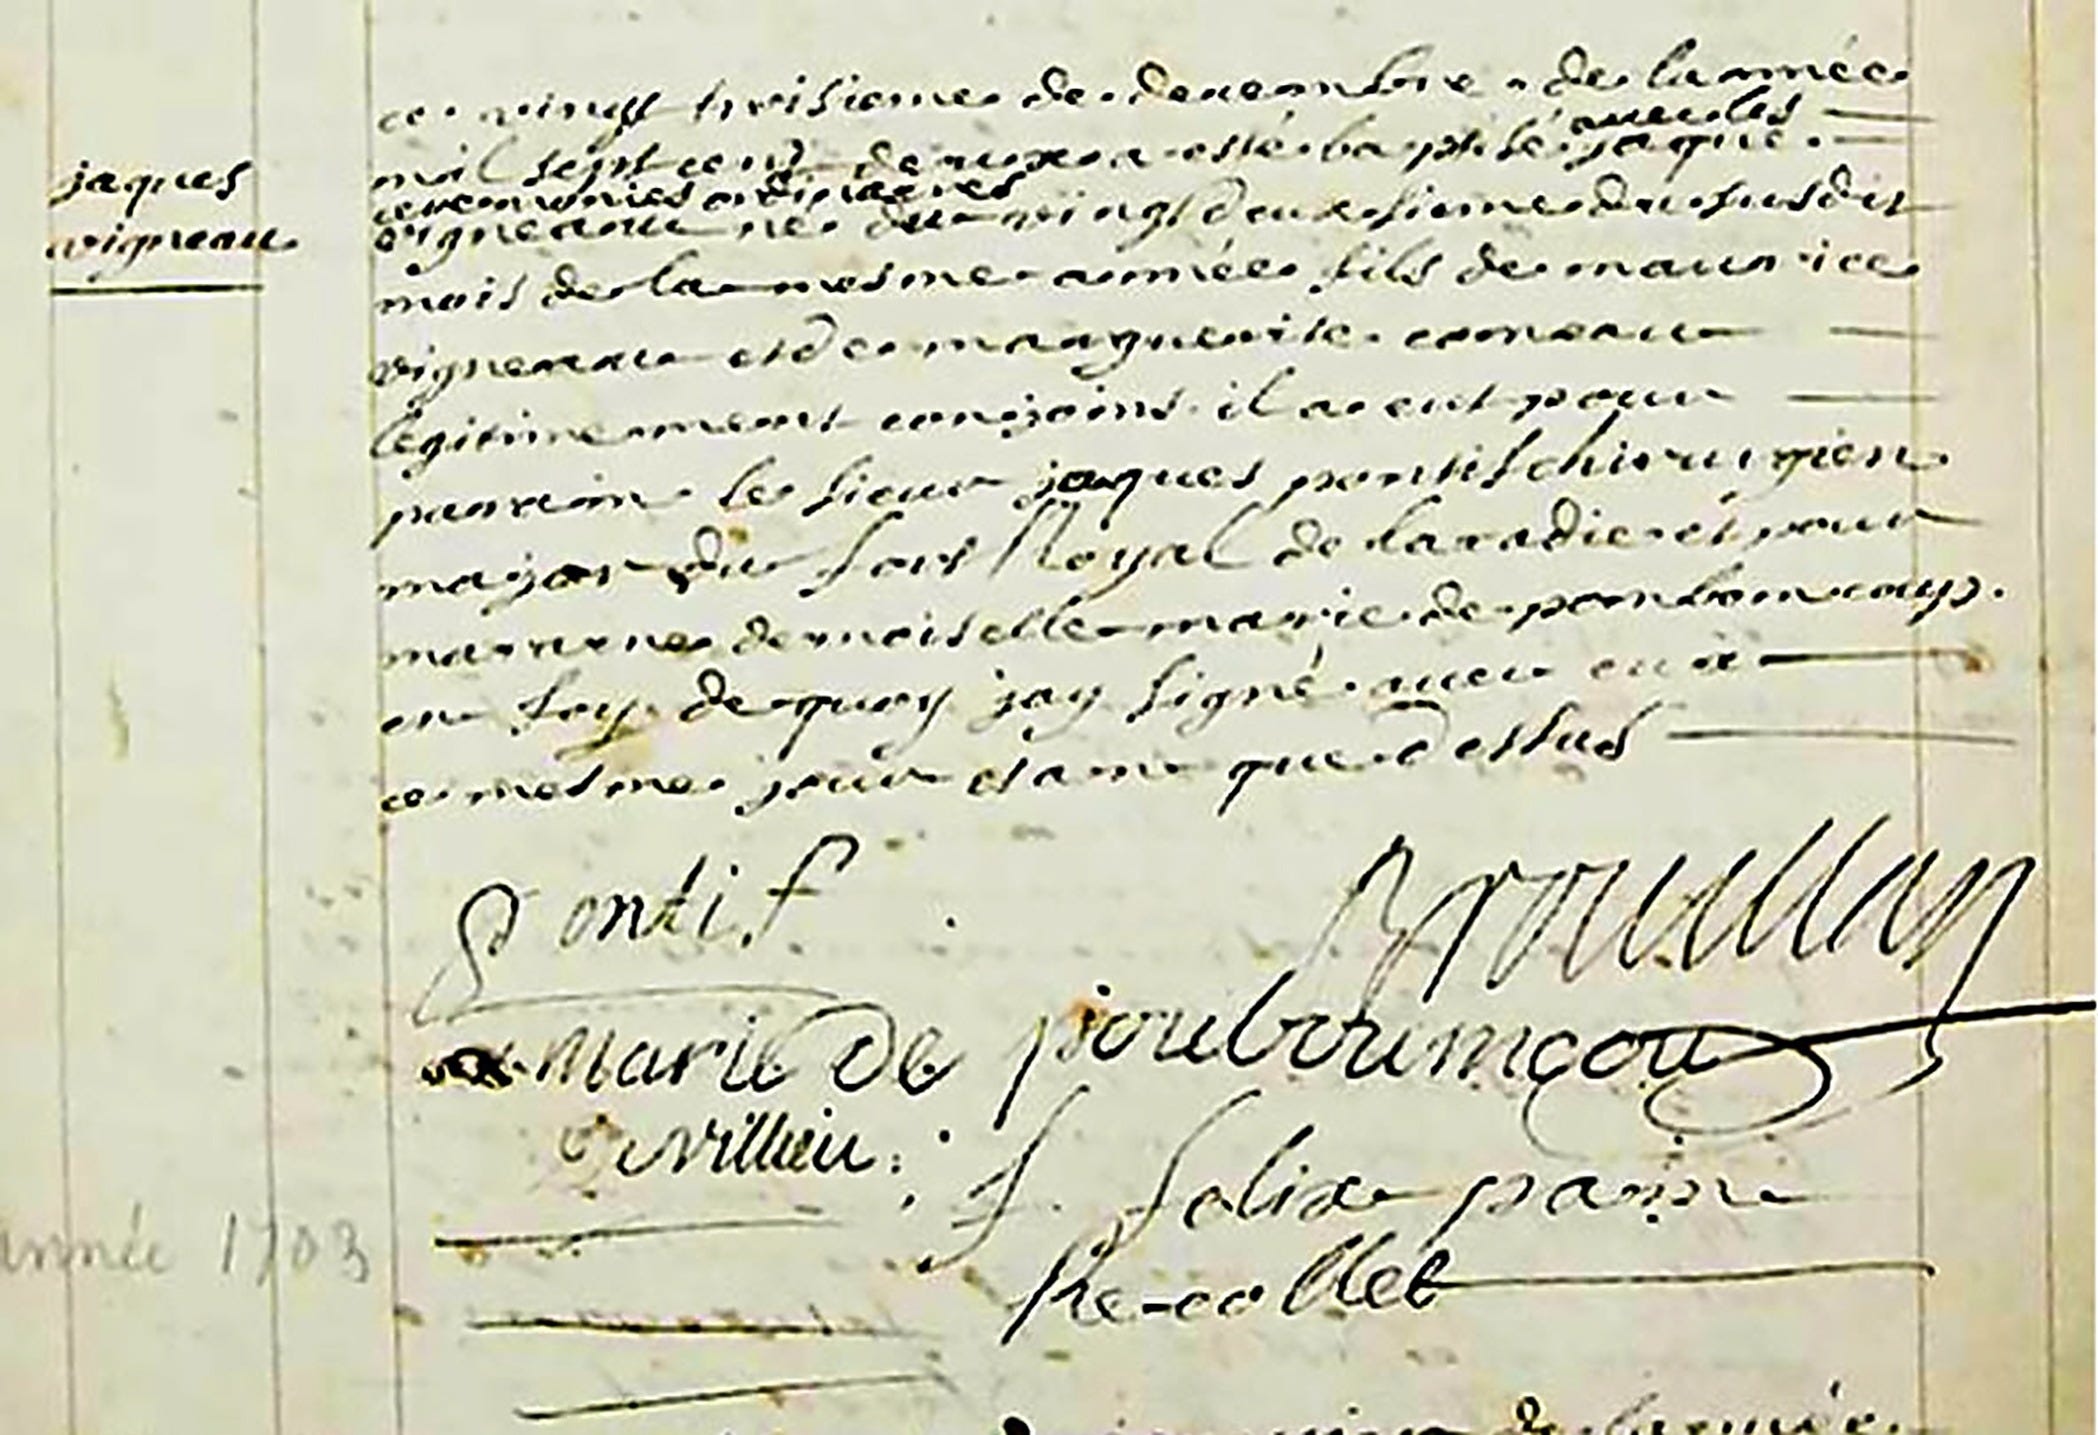 jaques
vigneau
ce vingt troisieme de decembre de lannée
mil sept cent deux a esté baptisé avec les
ceremonies ordinaires jaque
vigneau né du vingt deuxsieme du susdit
mois de la mesme année fils de maurice
vigneau et de marguerite comeau
legitimement conjoins il a eut pour
parain le sieur jaques pontif chirurgien
major du fort Royal de lacadie et pour
maraine demoiselle marie de
en foy de quoy jay signé avec eux
ce mesme jour et an que dessus
Pontif
Brouillan
marie de
villieu
f. felix pain
Recollet
année 1703
de lannée